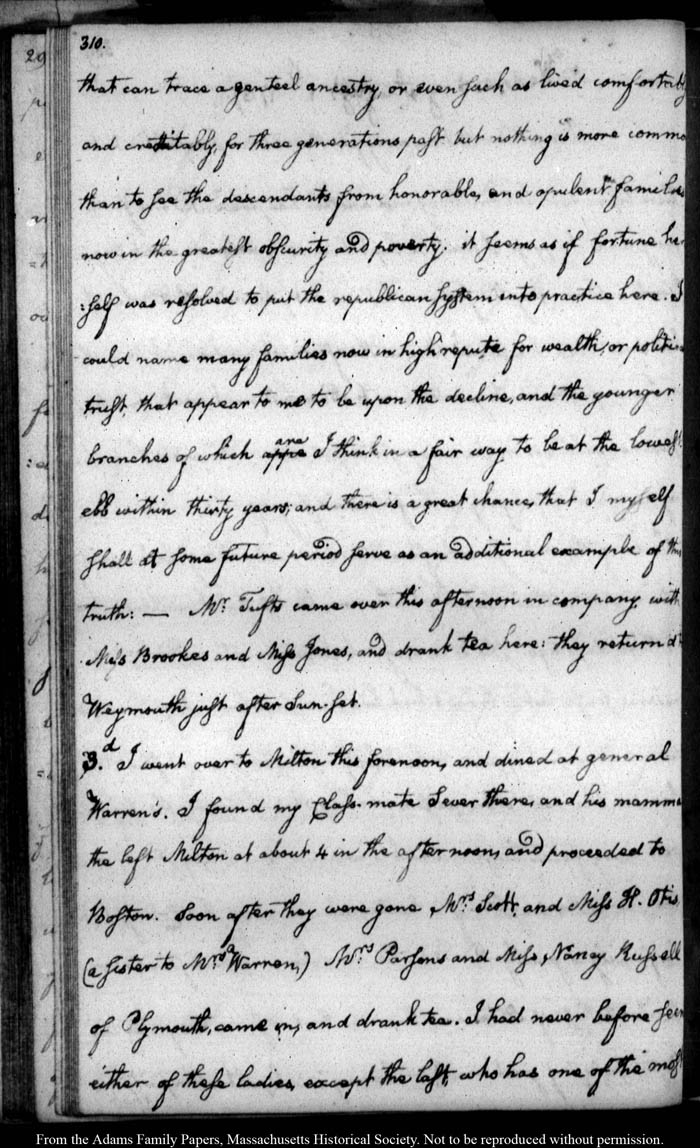 310.
that can trace a genteel ancestry, or even such as lived comfortably
and creditably, for three generations past but nothing is more commo
than to see the descendants from honorable, and opulent families
now in the greatest obscurity and poverty. it seems as if fortune he
:self was resolved to put the republican system into practice here. I
could name many families now in high repute for wealth, or politi
trust, that appear to me to be upon the decline, and the younger
branches of which appe are I think in a fair way to be at the lowest
ebb within thirty years; and there is a great chance, that I myself
shall at some future period serve as an additional example of this
truth: — Mr. Tufts came over this afternoon in company with
Miss Brookes and Miss Jones, and drank tea here: they return'd
Weymouth just after Sun-set.
3.d I went over to Milton this forenoon, and dined at general
Warren's. I found my Class-mate Sever there, and his mamma
the left Milton at about 4 in the afternoon, and proceeded to
Boston. Soon after they were gone Mrs Scott, and Miss H. Otis,
(a sister to Mrs Warren,) Mrs Parsons and Miss Nancy Russell
of Plymouth, came in, and drank tea. I had never before seen
either of these ladies, except the last, who has one of the most
From the Adams Family Papers, Massachusetts Historical Society. Not to be reproduced without permission.